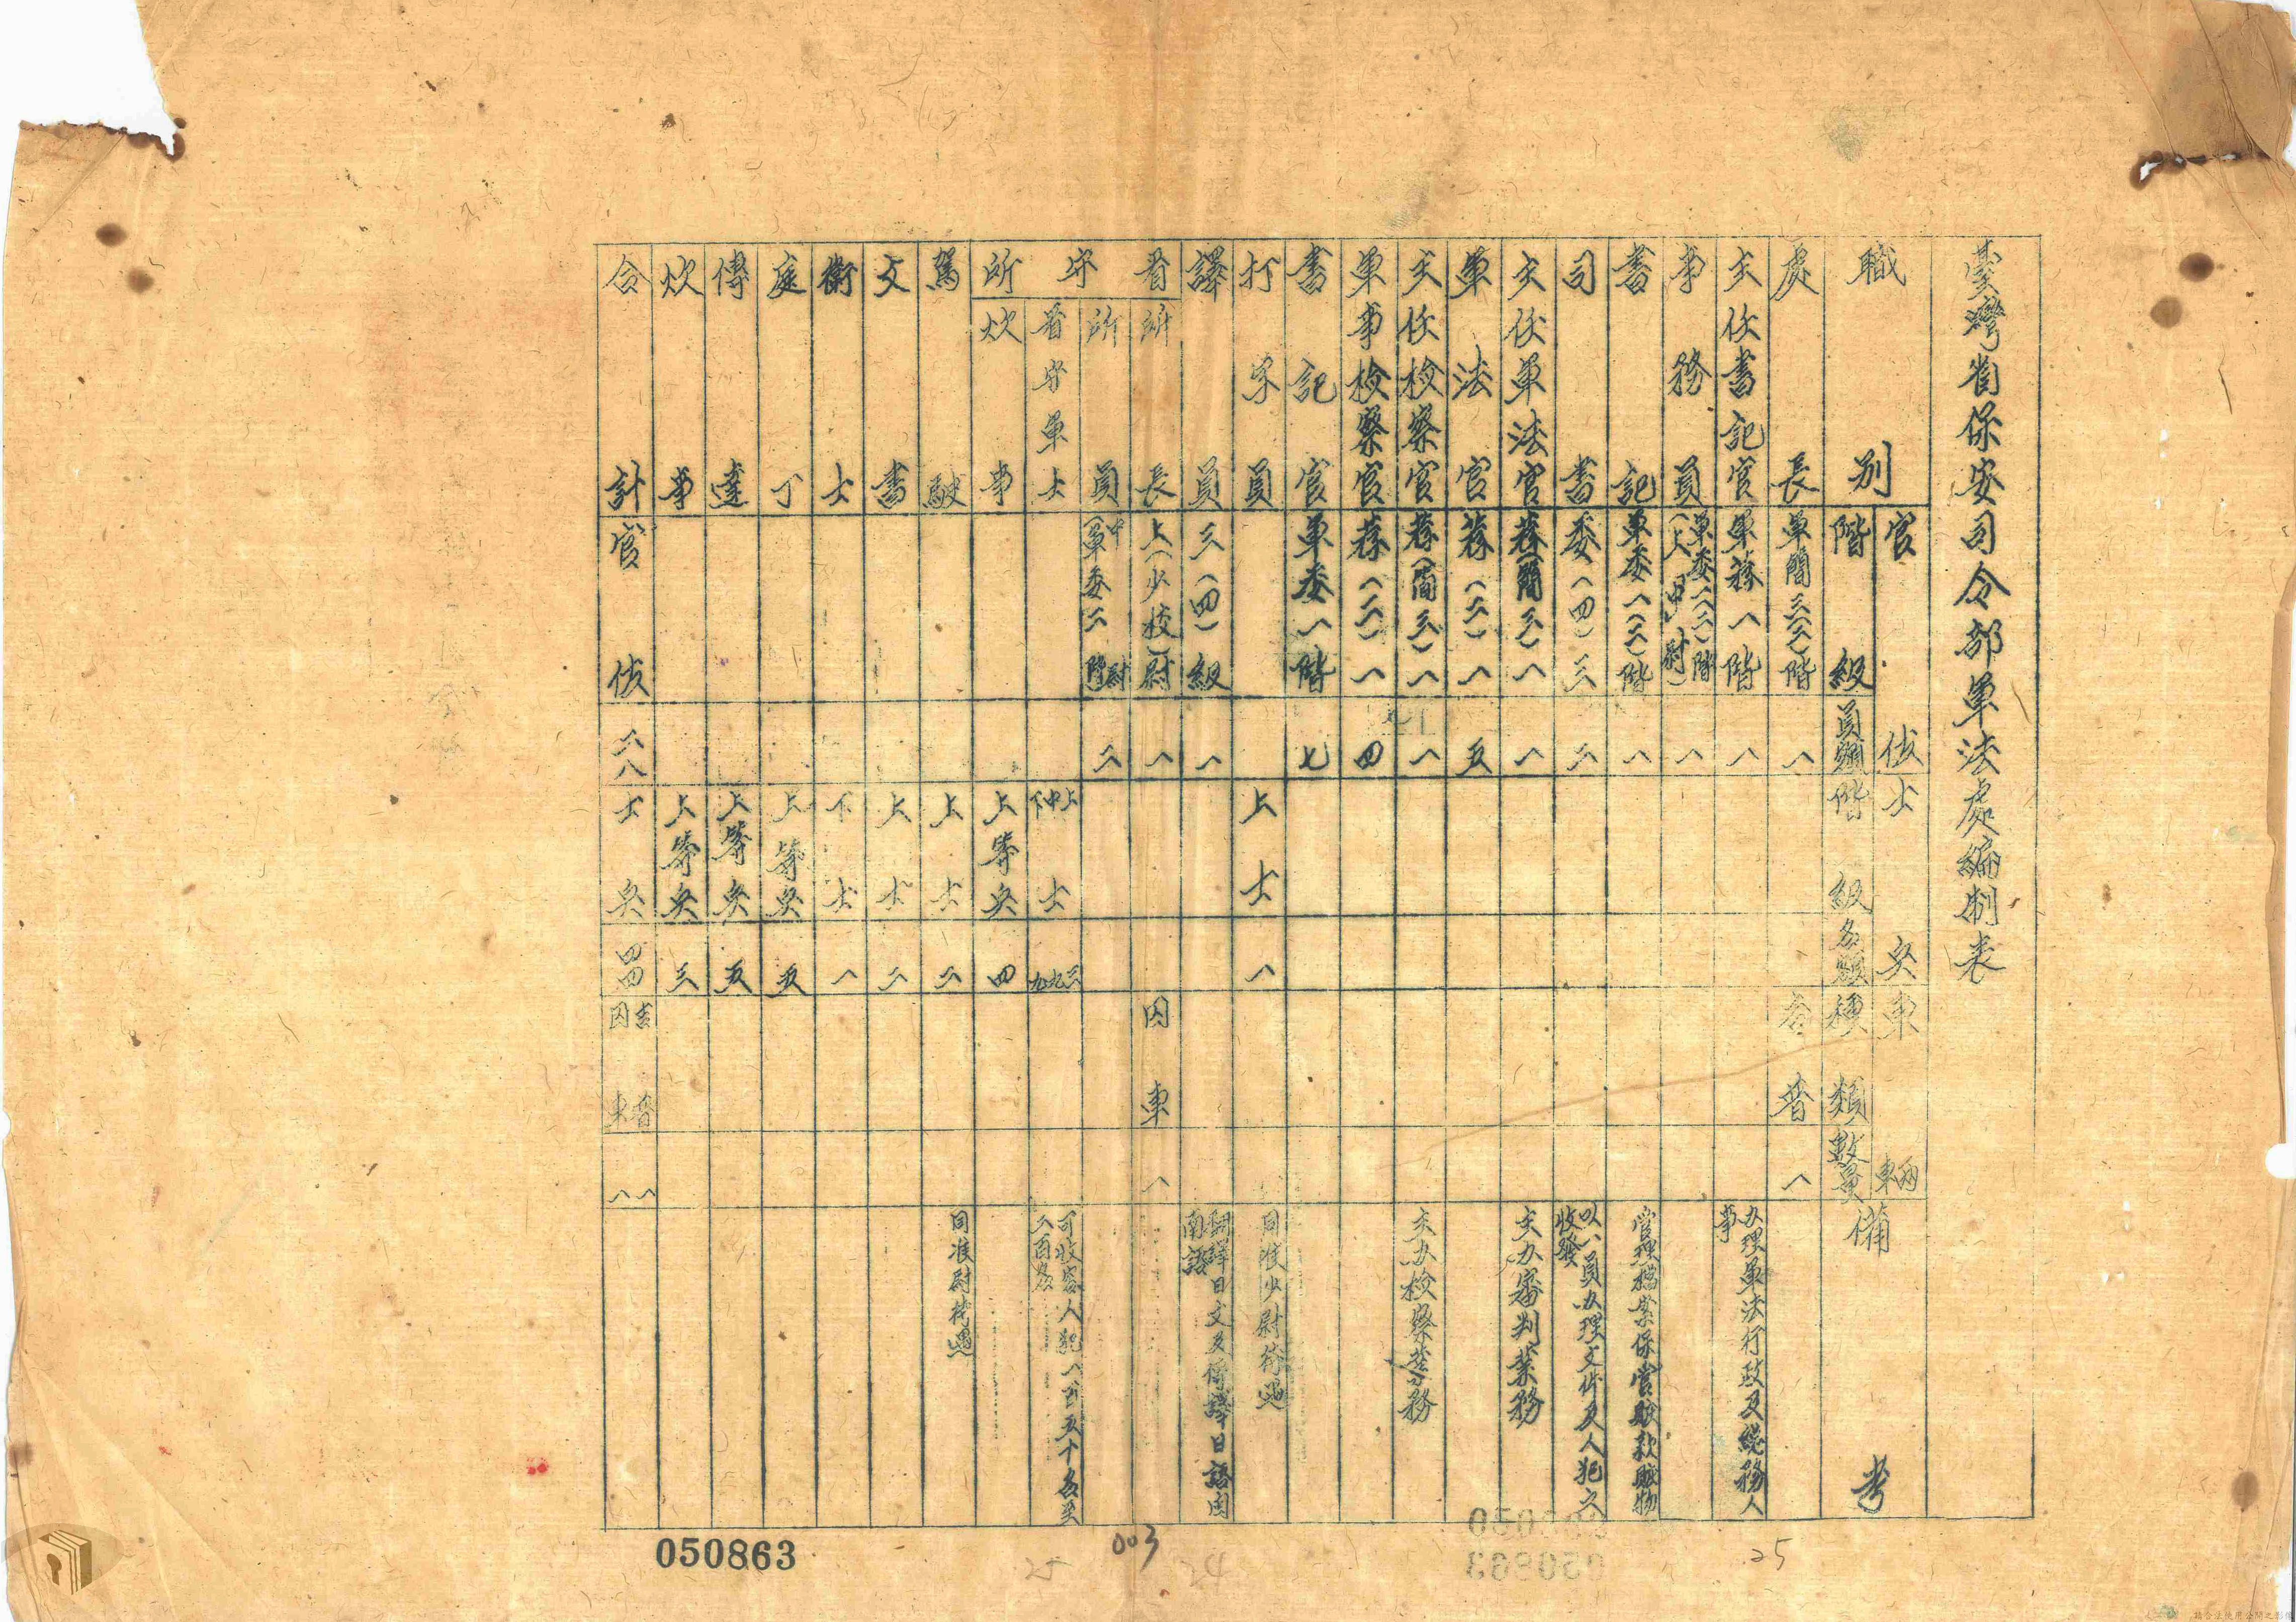 臺灣省保安司令部軍法處編制表
職別 官佐 階級 員額 士兵 階級 名額 車輛 種類 數量 備考
處長 軍簡三(二)階 一 吉普 一
主任書記官 軍薦一階 一 办理軍法行政及總務人事
事務員 軍委一(二)階(上(中)尉) 一
書記 軍委一(二)階 一 管理檔案保管賍款賍物
司書 委(四)三 二 以一員办理文件及人犯之收發
主任軍法官 薦(簡三)一 一 主办審判業務
軍法官 薦(二)一 五
主任檢察官 薦(簡三)一 一 主办檢察業務
軍事檢察官 薦(二)一 四
書記官 軍委一階 七
打字員 上士 一 同准少尉待遇
譯員 三(四)級 一 翻譯日文及傳譯日語閩南語
看守所
所長 上(少校)尉 一 囚車 一
所員 中尉(軍委二階) 二
看守軍士 上中下士 三九九 可收容人犯一百五十名至二百名
炊事 上等兵 四
駕駛 上士 二 同准尉待遇
文書 上士 二
衛士 下士 一
庭丁 上等兵 五
傳達 上等兵 五
炊事 上等兵 三
合計 官佐 二八 士兵 四四 吉普 囚車 一一
050863
003
25
24
25